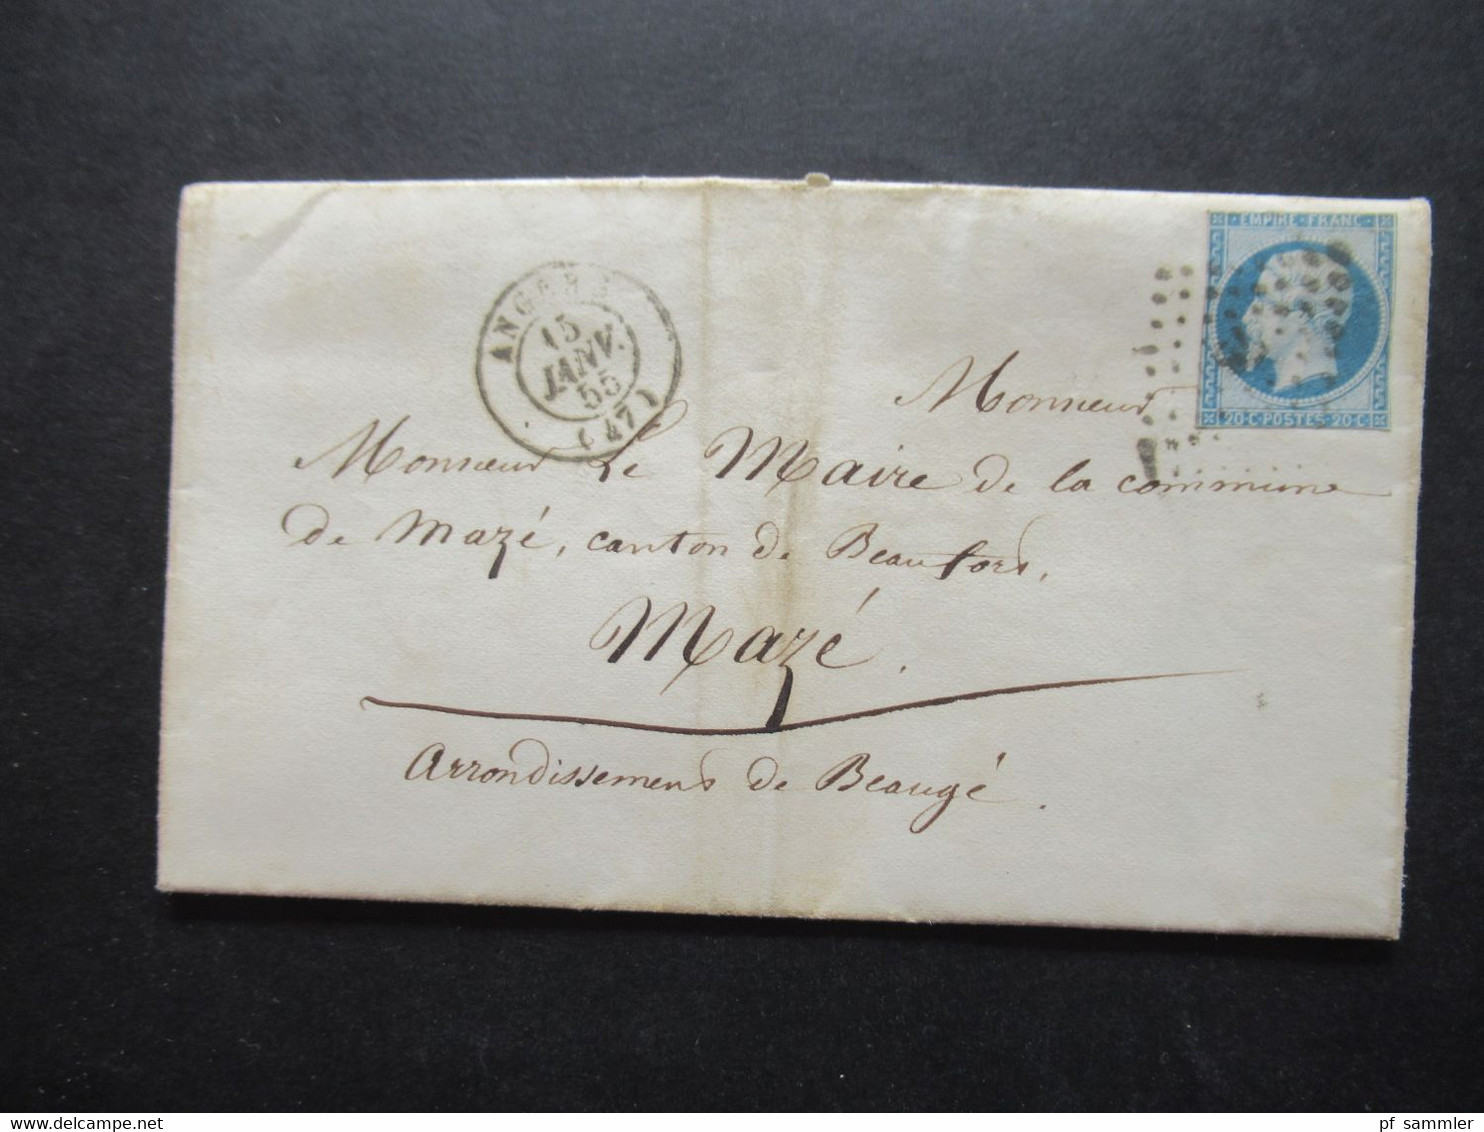 EMPIRE · FRANC ·
20·C·POSTES·20·C
ANGERS
15
JANV.
55
(47)
Monsieur
Monsieur Le Maire de la commune
de Mazé, canton de Beaufort,
Mazé.
Arrondissement de Beaugé.
www.delcampe.net
pf_sammler